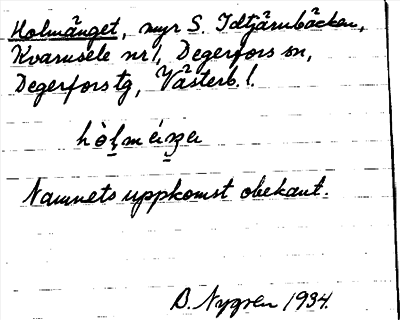 Holmänget, myr S. Idtjärnbäcken,
Kvarnsele nr 1, Degerfors sn,
Degerfors tg, Västerb. l.
Namnets uppkomst obekant.
B. Nygren 1934.